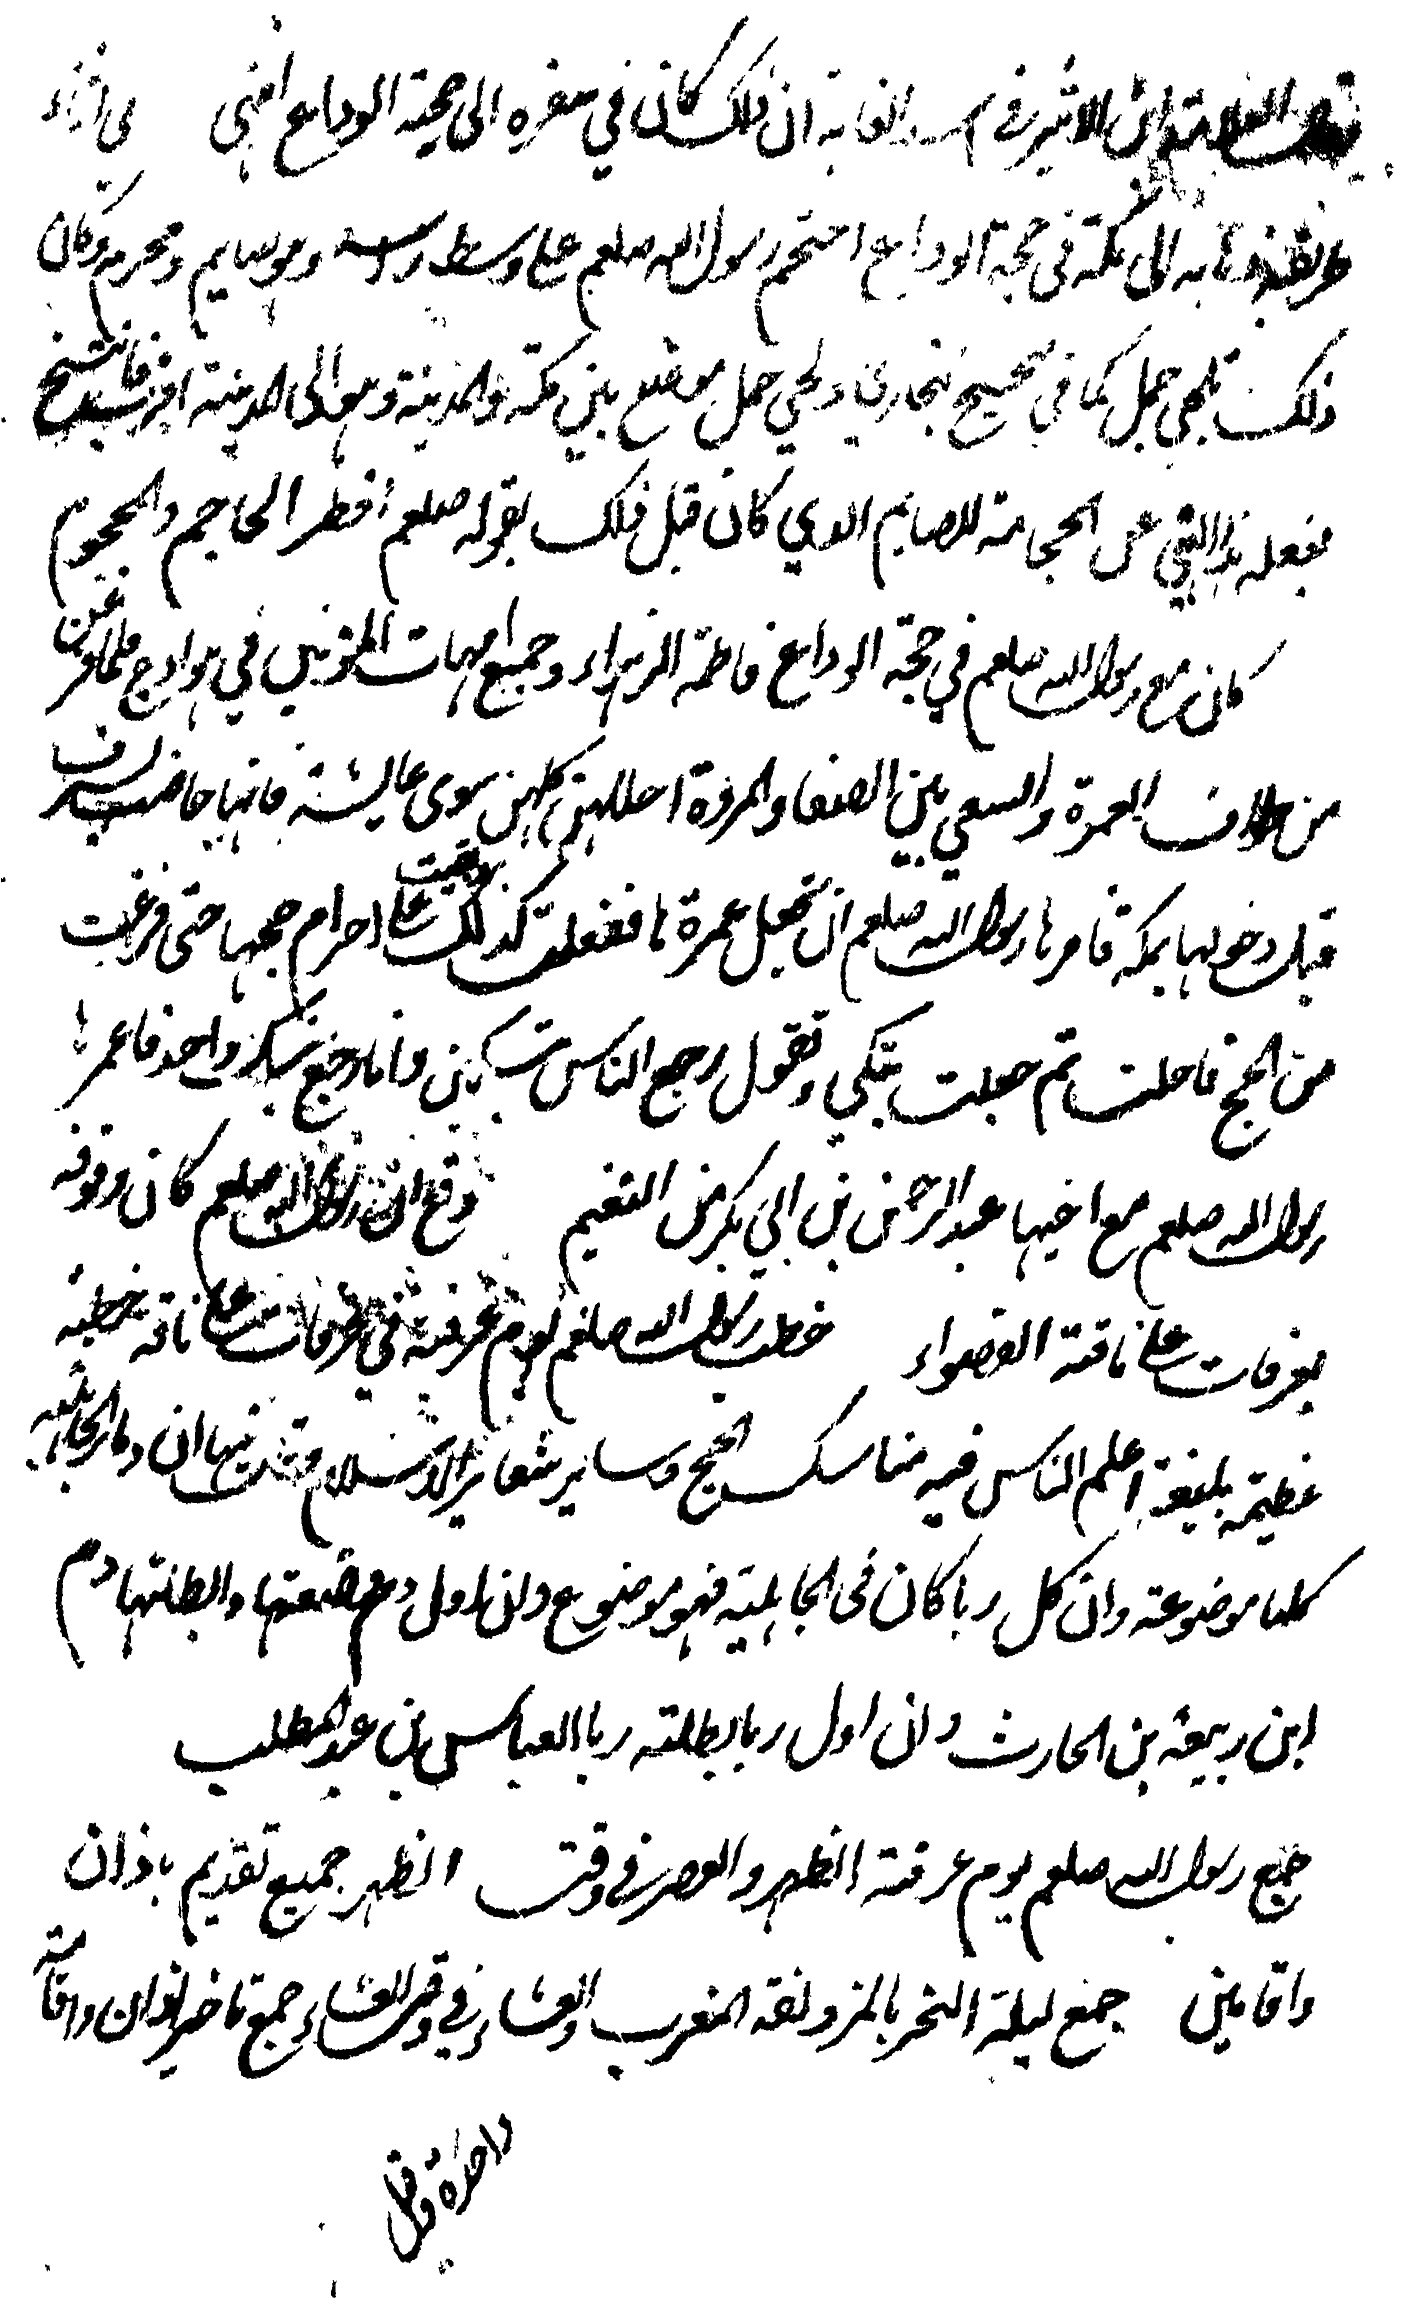 العلامة ابن الاثير في اسد الغابة ان ذلك كان في سفره الى حجة الوداع انتهى في اثناء
طريقه ذهابه الى مكة في حجة الوداع احتجم رسول الله صلعم على وسط راسه وهو صايم ومحرم وكان
ذلك بلحي جمل كما في صحيح بخاري ولحي جمل موضع بين مكة والمدينة وهو الى المدينة اقرب فانتسخ
بفعله هذا النهي عن الحجامة للصايم الذي كان قبل ذلك بقوله صلعم افطر الحاجم والمحجوم
كان مع رسول الله صلعم في حجة الوداع فاطمة الزهراء وجميع امهات المؤمنين في هوادج فلما فرغن
من طواف العمرة والسعي بين الصفا والمروة احللهن كلهن سوى عايشة فانها حاضت بسرف
قبل دخولها بمكة فامرها رسول الله صلعم ان تجعل عمرة ها ففعلت كذلك وبقيت على احرام حجها حتى فرغت
من الحج فاحلت ثم جعلت تبكي وتقول رجع الناس بنسكين وانا ارجع بنسك واحد فاعمرها
رسول الله صلعم مع اخيها عبد الرحمن بن ابي بكر من التنعيم وقع ان رسول الله صلعم كان وقوفه
بعرفات على ناقته القصواء خطب رسول الله صلعم يوم عرفة في عرفات على ناقته خطبة
عظيمة بليغة اعلم الناس فيه مناسك الحج وساير شعاير الاسلام فيها ان دماء الجاهلية
كلها موضوعة وان كل ربا كان في الجاهلية فهو موضوع وان اول دم وضعتها وابطلتها دم
ابن ربيعة بن الحارث وان اول ربا بطلته ربا العباس بن عبد المطلب
جمع رسول الله صلعم يوم عرفة الظهر والعصر في وقت الظهر جميع تقديم باذان
واقامين جمع ليلة النحر بالمزدلفة المغرب والعشاء في وقت العشاء جمع تاخير باذان واقامة
واحدة وقيل